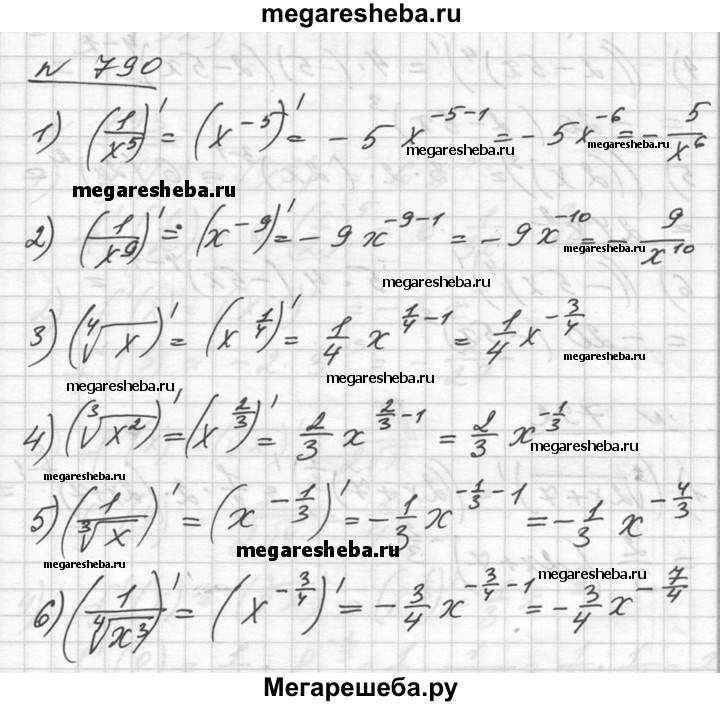 megaresheba.ru
№ 790
1) (1/x⁵)' = (x⁻⁵)' = -5x⁻⁵⁻¹ = -5x⁻⁶ = -5/x⁶
megaresheba.ru megaresheba.ru
megaresheba.ru
2) (1/x⁹)' = (x⁻⁹)' = -9x⁻⁹⁻¹ = -9x⁻¹⁰ = -9/x¹⁰
megaresheba.ru
megaresheba.ru
3) (⁴√x)' = (x^(1/4))' = 1/4 x^(1/4-1) = 1/4 x^(-3/4)
megaresheba.ru
megaresheba.ru megaresheba.ru
4) (³√x²)' = (x^(2/3))' = 2/3 x^(2/3-1) = 2/3 x^(-1/3)
megaresheba.ru
megaresheba.ru
5) (1/³√x)' = (x^(-1/3))' = -1/3 x^(-1/3-1) = -1/3 x^(-4/3)
megaresheba.ru
megaresheba.ru megaresheba.ru
6) (1/⁴√x³)' = (x^(-3/4))' = -3/4 x^(-3/4-1) = -3/4 x^(-7/4)
Мегарешеба.ру